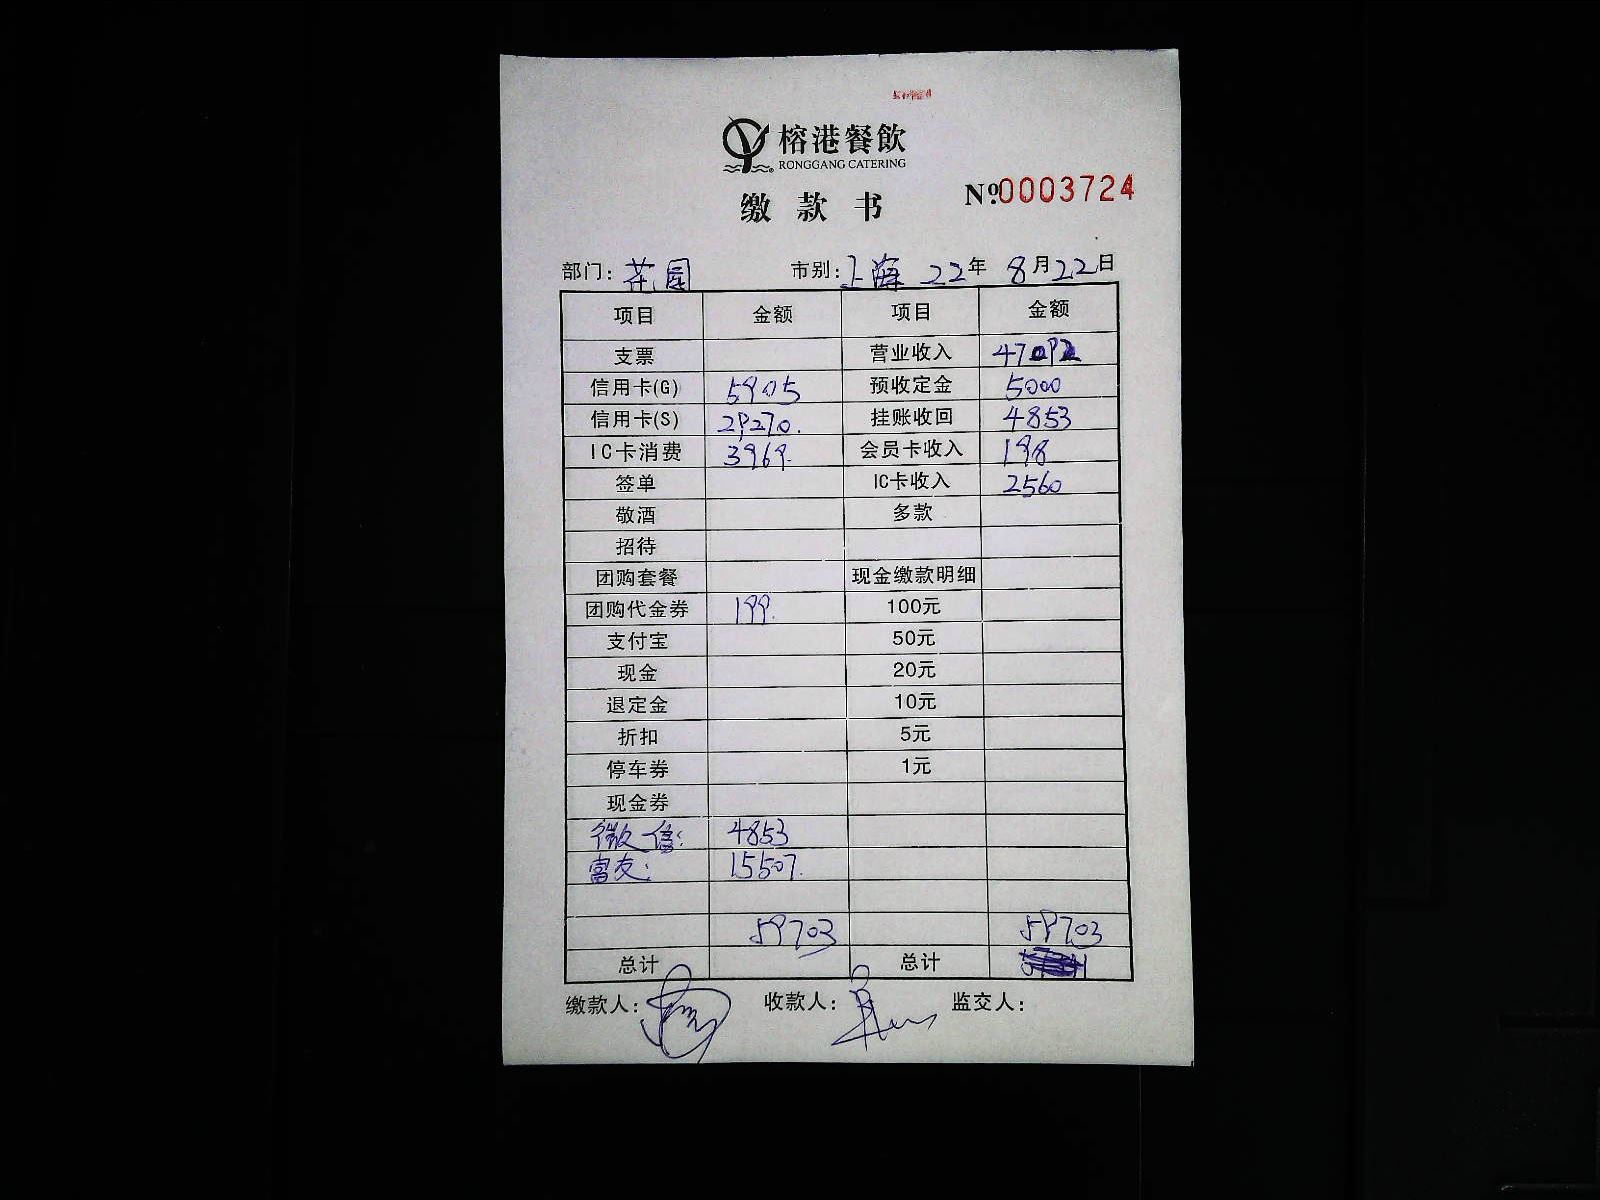 榕港餐飲
RONGGANG CATERING
缴款书 №0003724
部门: 花园 市别: 上海 22年 8月22日
项目 金额 项目 金额
支票 营业收入 47092
信用卡(G) 5905 预收定金 5000
信用卡(S) 29270. 挂账收回 4853
IC卡消费 3969. 会员卡收入 198
签单 IC卡收入 2560
敬酒 多款
招待
团购套餐 现金缴款明细
团购代金券 199. 100元
支付宝 50元
现金 20元
退定金 10元
折扣 5元
停车券 1元
现金券
微信: 4853
富友: 15507.
59703 59703
总计 总计
缴款人: 收款人: 监交人: